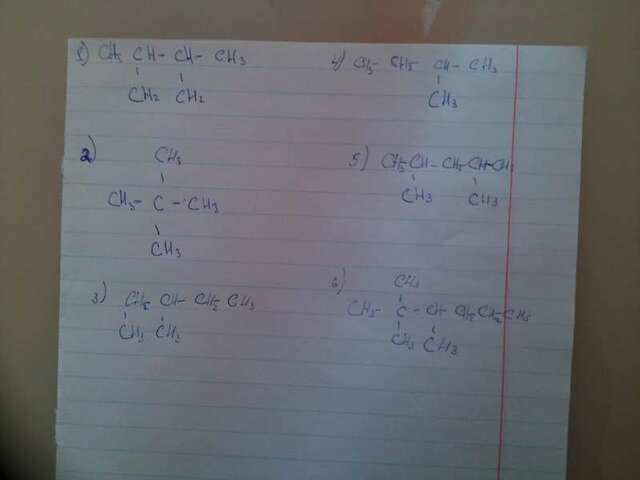 1) CH3 CH- CH- CH3
CH2 CH2
2) CH3
CH3- C - CH3
CH3
3) CH2 CH- CH2 CH3
CH3 CH2
4) CH3- CH2 CH- CH3
CH3
5) CH3 CH- CH2 CH-CH3
CH3 CH3
6) CH3
CH3- C - CH- CH2 CH2 CH3
CH3 CH3